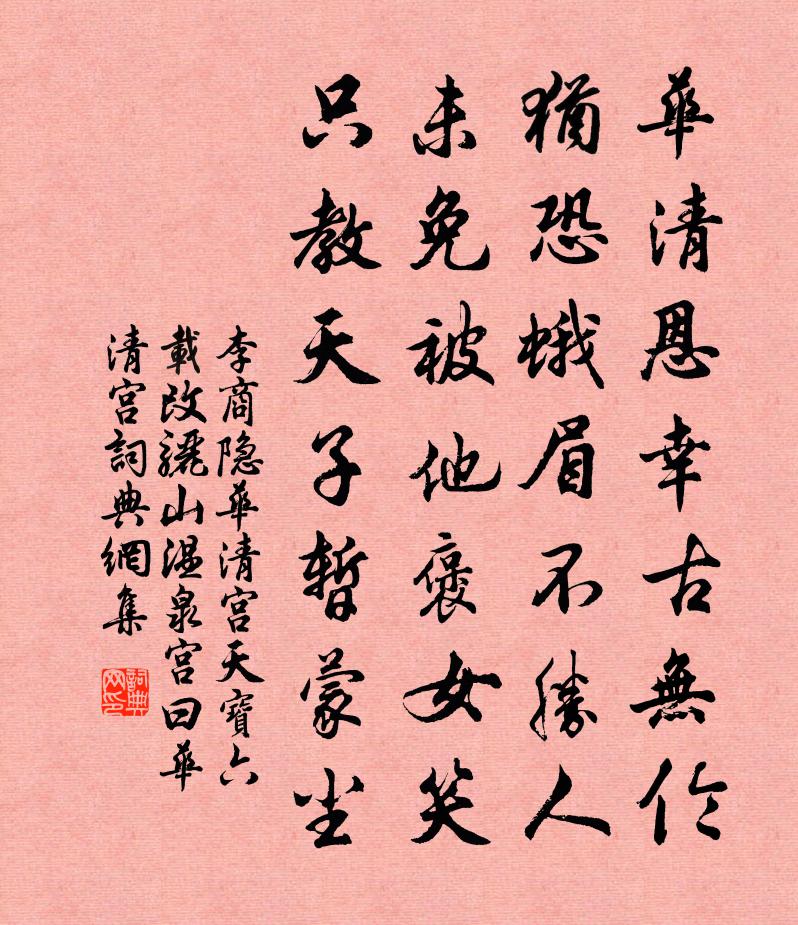 華清恩幸古無伦
猶恐蛾眉不勝人
未免被他褒女笑
只教天子暫蒙尘
李商隐華清宫天寶六
載改驪山温泉宫曰華
清宫詞典網集
詞典
网印